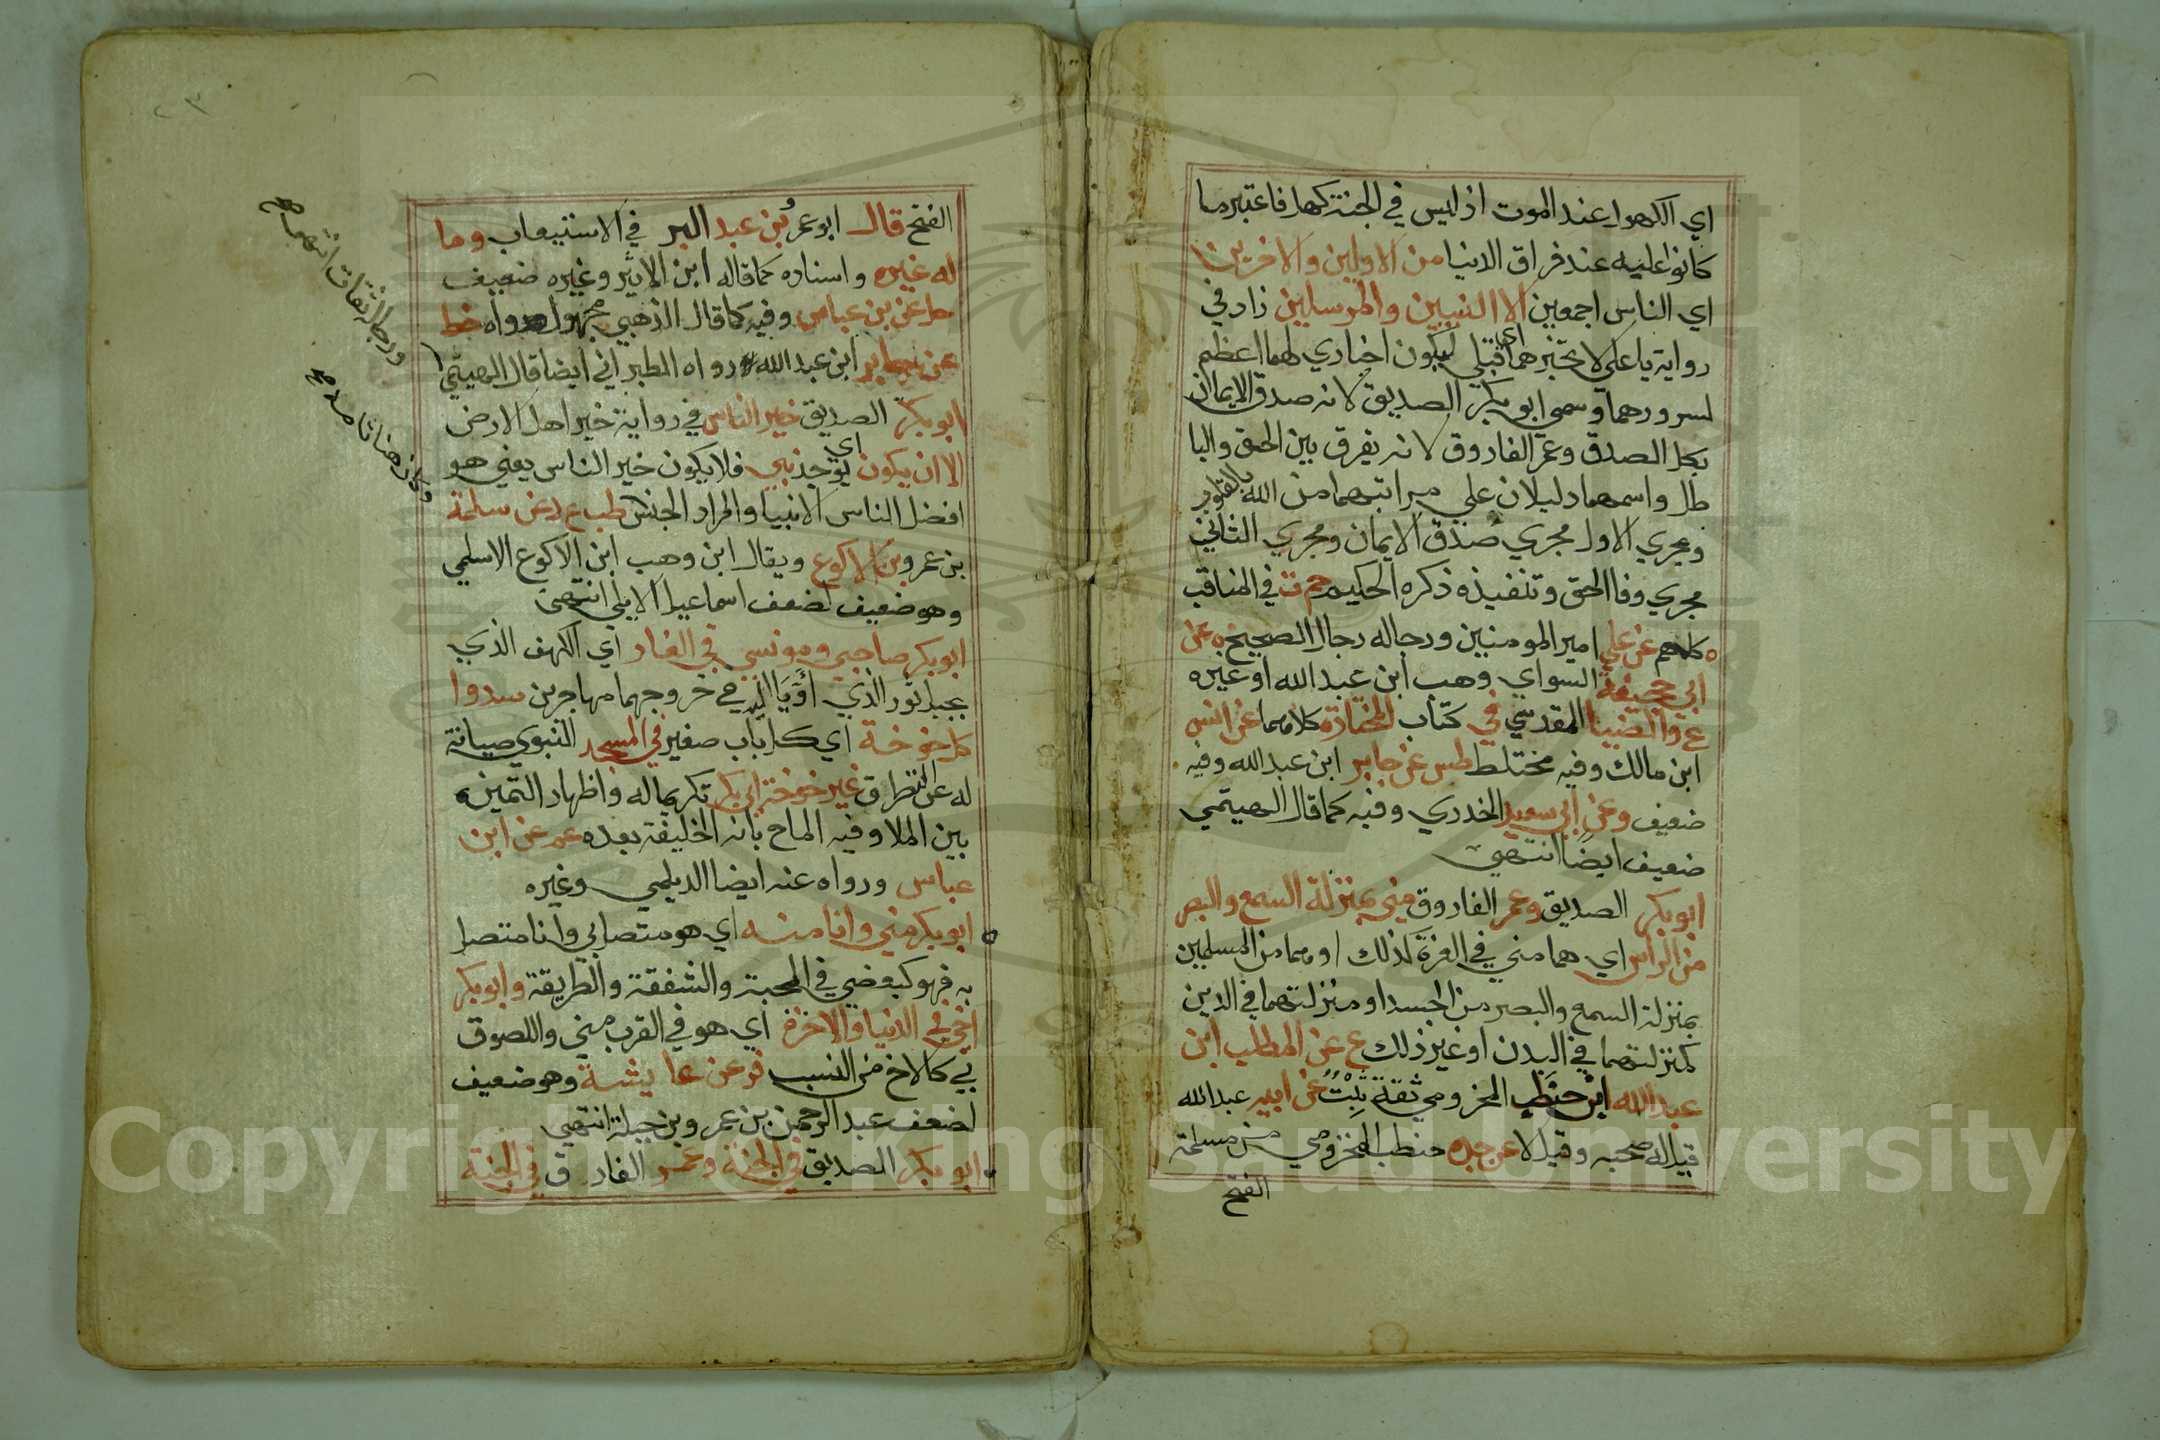 اي الكهول عند الموت اذ ليس في الجنة كهل فاعتبر ما
كانوا عليه عند فراق الدنيا من الاولين والاخرين
اي الناس اجمعين الا النبيين والمرسلين زاد في
رواية يا علي لا تخبرهما اي قبلي ليكون اخباري لهما اعظم
لسرورهما وسمي ابو بكر الصديق لانه صدق الايمان
بكل الصدق وعمر الفاروق لانه يفرق بين الحق والبا
طل واسمهما دليلان علي مراتبهما من الله بالقلوب
ومجري الاول مجري صدق الايمان ومجري الثاني
مجري وفا الحق وتنفيذه ذكره الحكيم حم ت في المناقب
كلهم عن علي امير المومنين ورجاله رجال الصحيح ه عن
ابي جحيفة السواي وهب ابن عبد الله او غيره
ع والضيا المقدسي في كتاب المختارة كلاهما عن انس
ابن مالك وفيه مختلط طس عن جابر ابن عبد الله وفيه
ضعيف وعن ابي سعيد الخدري وفيه كما قال الهيتمي
ضعيف ايضا انتهي
ابو بكر الصديق وعمر الفاروق مني بمنزلة السمع والبصر
من الراس اي هما مني في العزة كذلك او هما من المسلمين
بمنزلة السمع والبصر من الجسد او منزلتهما في الدين
كمنزلتهما في البدن او غير ذلك ع عن المطلب ابن
عبد الله ابن حنطب المخزومي ثقة ثبت عن ابيه عبد الله
قيل له صحبه وقيل لا عن جده حنطب المخزومي من مسلمة
الفتح
الفتح قال ابو عمر بن عبد البر في الاستيعاب وما
له غيره واسناده كما قاله ابن الاثير وغيره ضعيف
حل عن بن عباس وفيه كما قال الذهبي مجهول رواه خط
عن جابر ابن عبد الله رواه الطبراني ايضا قال الهيتمي
ورجاله ثقات انتهي
ابو بكر الصديق خير الناس في رواية خير اهل الارض
الا ان يكون اي يوجد نبي فلا يكون خير الناس يعني هو
افضل الناس الا الانبيا والمراد الجنس طب عد عن سلمة
بن عمرو بن الاكوع ويقال ابن وهب ابن الاكوع الاسلمي
وهو ضعيف لضعف اسماعيل الايلي انتهي
ابو بكر صاحبي ومونسي في الغار اي الكهف الذي
بجبل ثور الذي أَوَيَا اليه في خروجهما مهاجرين سدوا
كل خوخة اي كل باب صغير في المسجد النبوي صيانة
له عن التطراق غير خوخة ابي بكر تكريما له واظهار التميزه
بين الملا وفيه الماح بانه الخليفة بعده عم عن ابن
عباس ورواه عنه ايضا الديلمي وغيره
ابو بكر مني وانا منه اي هو متصل بي وانا متصل
به فهو كبعضي في المحبة والشفقة والطريقة وابو بكر
اخي في الدنيا والاخرة اي هو في القرب مني واللصوق
بي كالاخ من النسب فر عن عايشة وهو ضعيف
لضعف عبد الرحمن بن عمرو بن جبلة انتهي
ابو بكر الصديق في الجنة وعمر الفاروق في الجنة